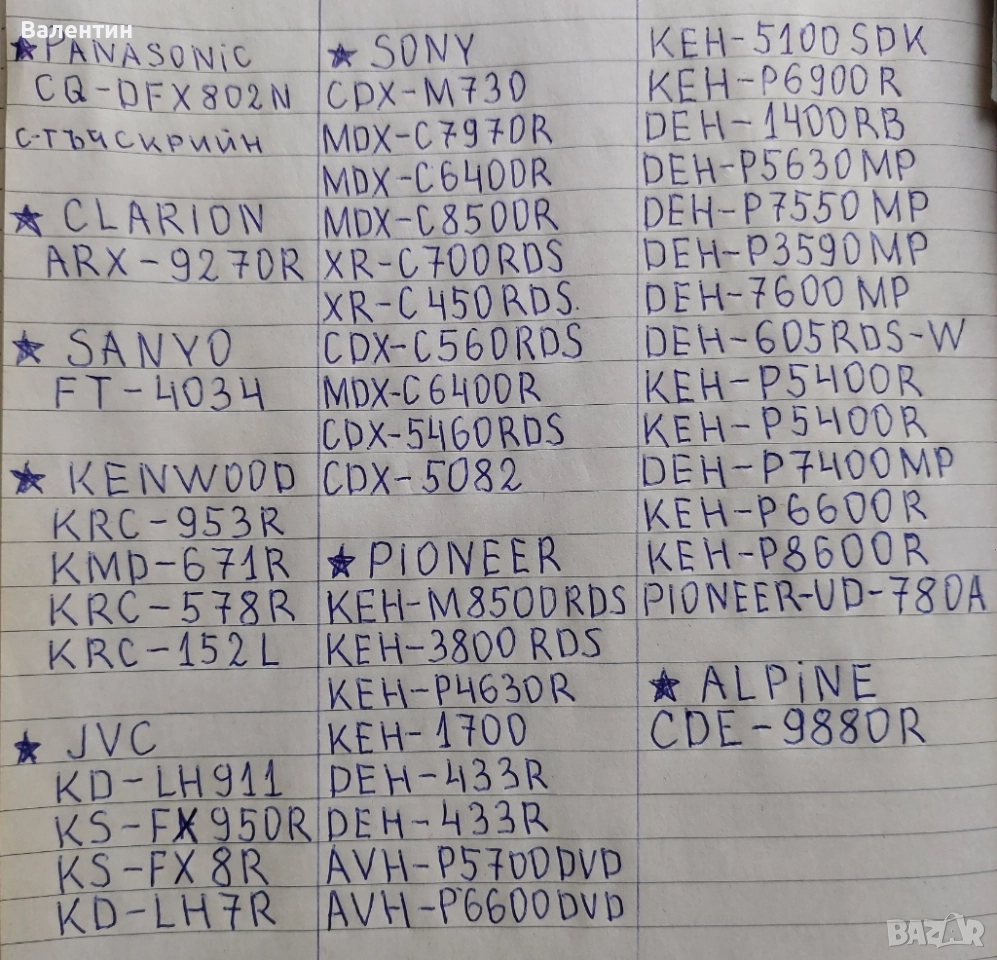 Валентин
★ PANASONiC
CQ-DFX802N
с-тъчскрийн
★ CLARION
ARX-9270R
★ SANYO
FT-4034
★ KENWOOD
KRC-953R
KMD-671R
KRC-578R
KRC-152L
★ JVC
KD-LH911
KS-FX950R
KS-FX8R
KD-LH7R
★ SONY
CDX-M730
MDX-C7970R
MDX-C6400R
MDX-C8500R
XR-C700RDS
XR-C450RDS.
CDX-C560RDS
MDX-C6400R
CDX-5460RDS
CDX-5082
★ PiONEER
KEH-M8500RDS
KEH-3800RDS
KEH-P4630R
KEH-1700
DEH-433R
DEH-433R
AVH-P5700DVD
AVH-P6600DVD
KEH-5100SDK
KEH-P6900R
DEH-1400RB
DEH-P5630MP
DEH-P7550MP
DEH-P3590MP
DEH-7600MP
DEH-605RDS-W
KEH-P5400R
KEH-P5400R
DEH-P7400MP
KEH-P6600R
KEH-P8600R
PIONEER-UD-780A
★ ALPiNE
CDE-9880R
BAZAR